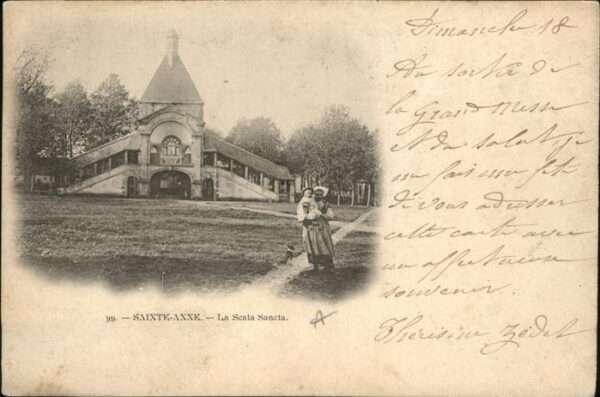 Dimanche 18
Au sortir de
la Grand Messe
et du salut, je
me fais une fête
de vous adresser
cette carte avec
un affectueux
souvenir.
Thérésine
99. — SAINTE-ANNE. — La Scala Sancta.